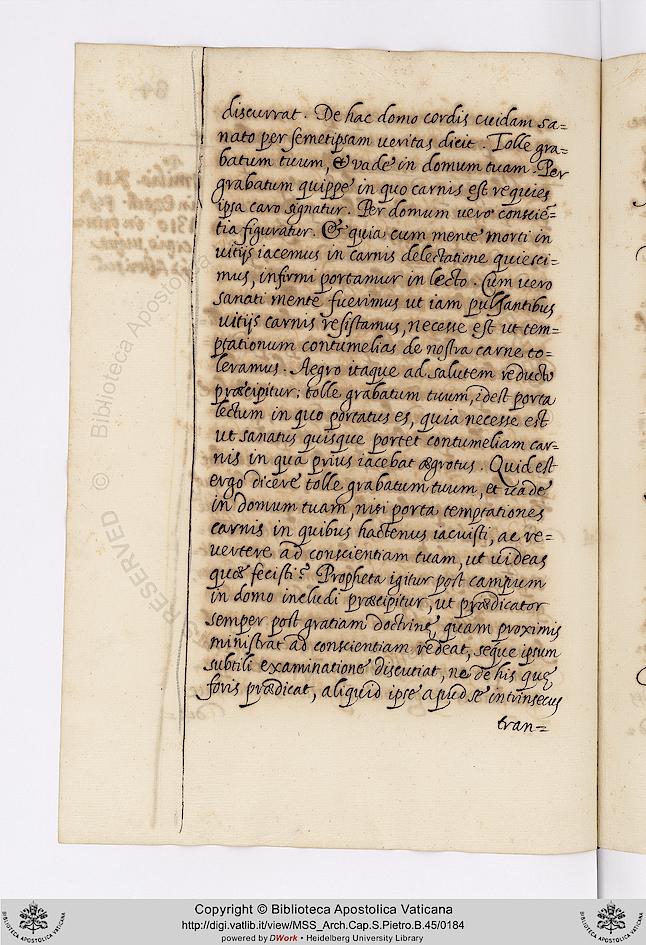 discurrat. De hac domo cordis cuidam sa=
nato per semetipsam ueritas dicit. Tolle gra=
batum tuum, & vade in domum tuam. Per
grabatum quippe in quo carnis est requies
ipsa caro signatur. Per domum uero conscie=
tia figuratur. Et quia cum mente morti in
uitijs iacemus in carnis delectatione quiesci=
mus, infirmi portamur in lecto. Cum uero
sanati mente fuerimus ut iam pulsantibus
uitijs carnis resistamus, necesse est ut tem=
ptationum contumelias de nostra carne to=
leramus. Aegro itaque ad salutem reducto
præcipitur; tolle grabatum tuum, idest porta
lectum in quo portatus es, quia necesse est
ut sanatus quisque portet contumeliam car=
nis in qua prius iacebat ægrotus. Quid est
ergo dicere tolle grabatum tuum, et uade
in domum tuam, nisi porta temptationes
carnis in quibus hactenus iacuisti, ac re=
uertere ad conscientiam tuam, ut uideas
quæ fecisti? Propheta igitur post campum
in domo includi præcipitur, ut prædicator
semper post gratiam doctrinę, quam proximis
ministrat ad conscientiam redeat, seque ipsum
subtili examinatione discutiat, ne de his quę
foris prædicat, aliquid ipse apud se intrinsecus
tran=
© Biblioteca Apostolica
Copyright © Biblioteca Apostolica Vaticana
http://digi.vatlib.it/view/MSS_Arch.Cap.S.Pietro.B.45/0184
powered by DWork • Heidelberg University Library